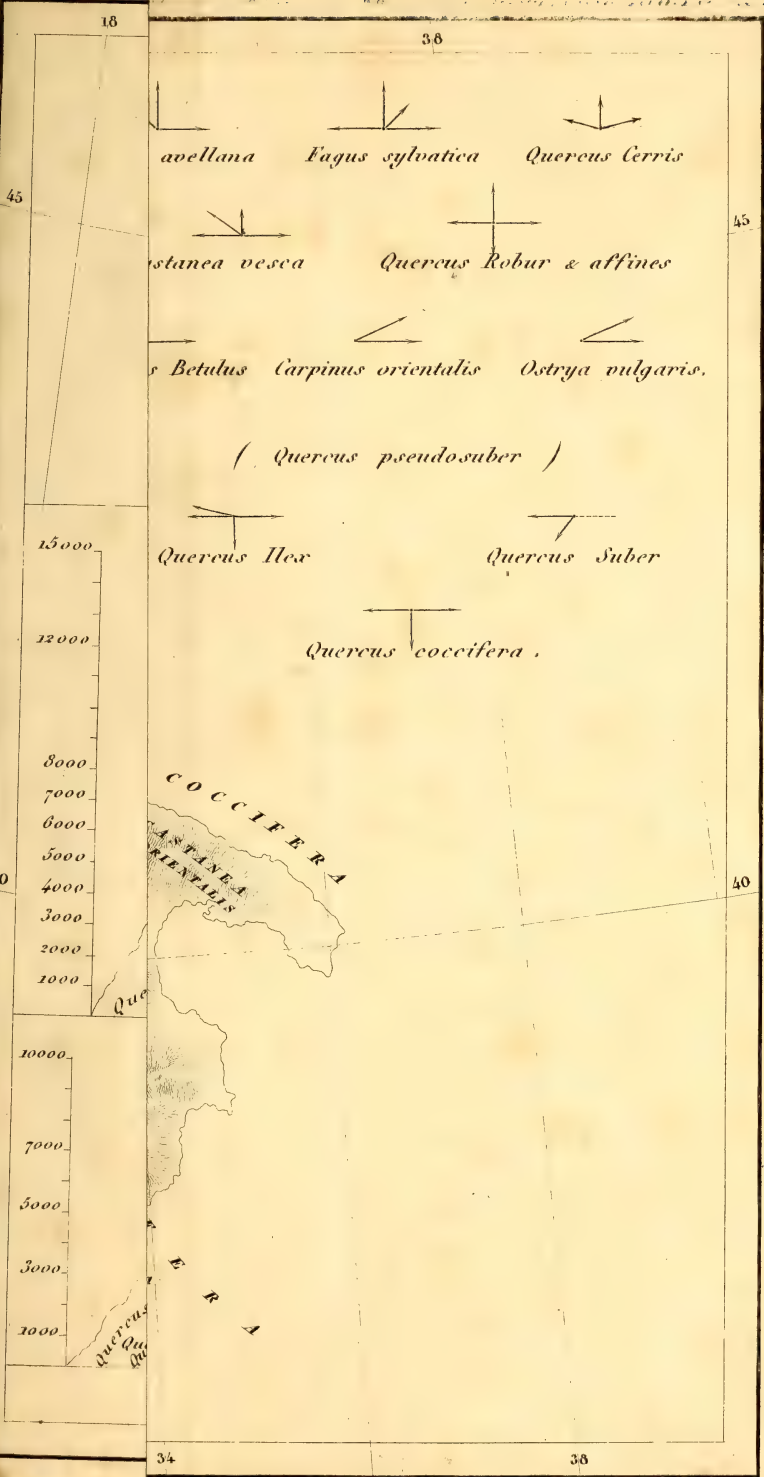 18
38
avellana Fagus sylvatica Quercus Cerris
45
45
stanea vesca Quercus Robur & affines
s Betulus Carpinus orientalis Ostrya vulgaris.
( Quercus pseudosuber )
15000
Quercus Ilex Quercus Suber
12000
Quercus coccifera .
8000
7000
6000
5000
4000
3000
2000
1000
COCCIFERA
ASTANEA
RIENTALIS
0
40
Que
10000
7000
5000
3000
1000
ERA
Quercus
Qu
Qu
34
38